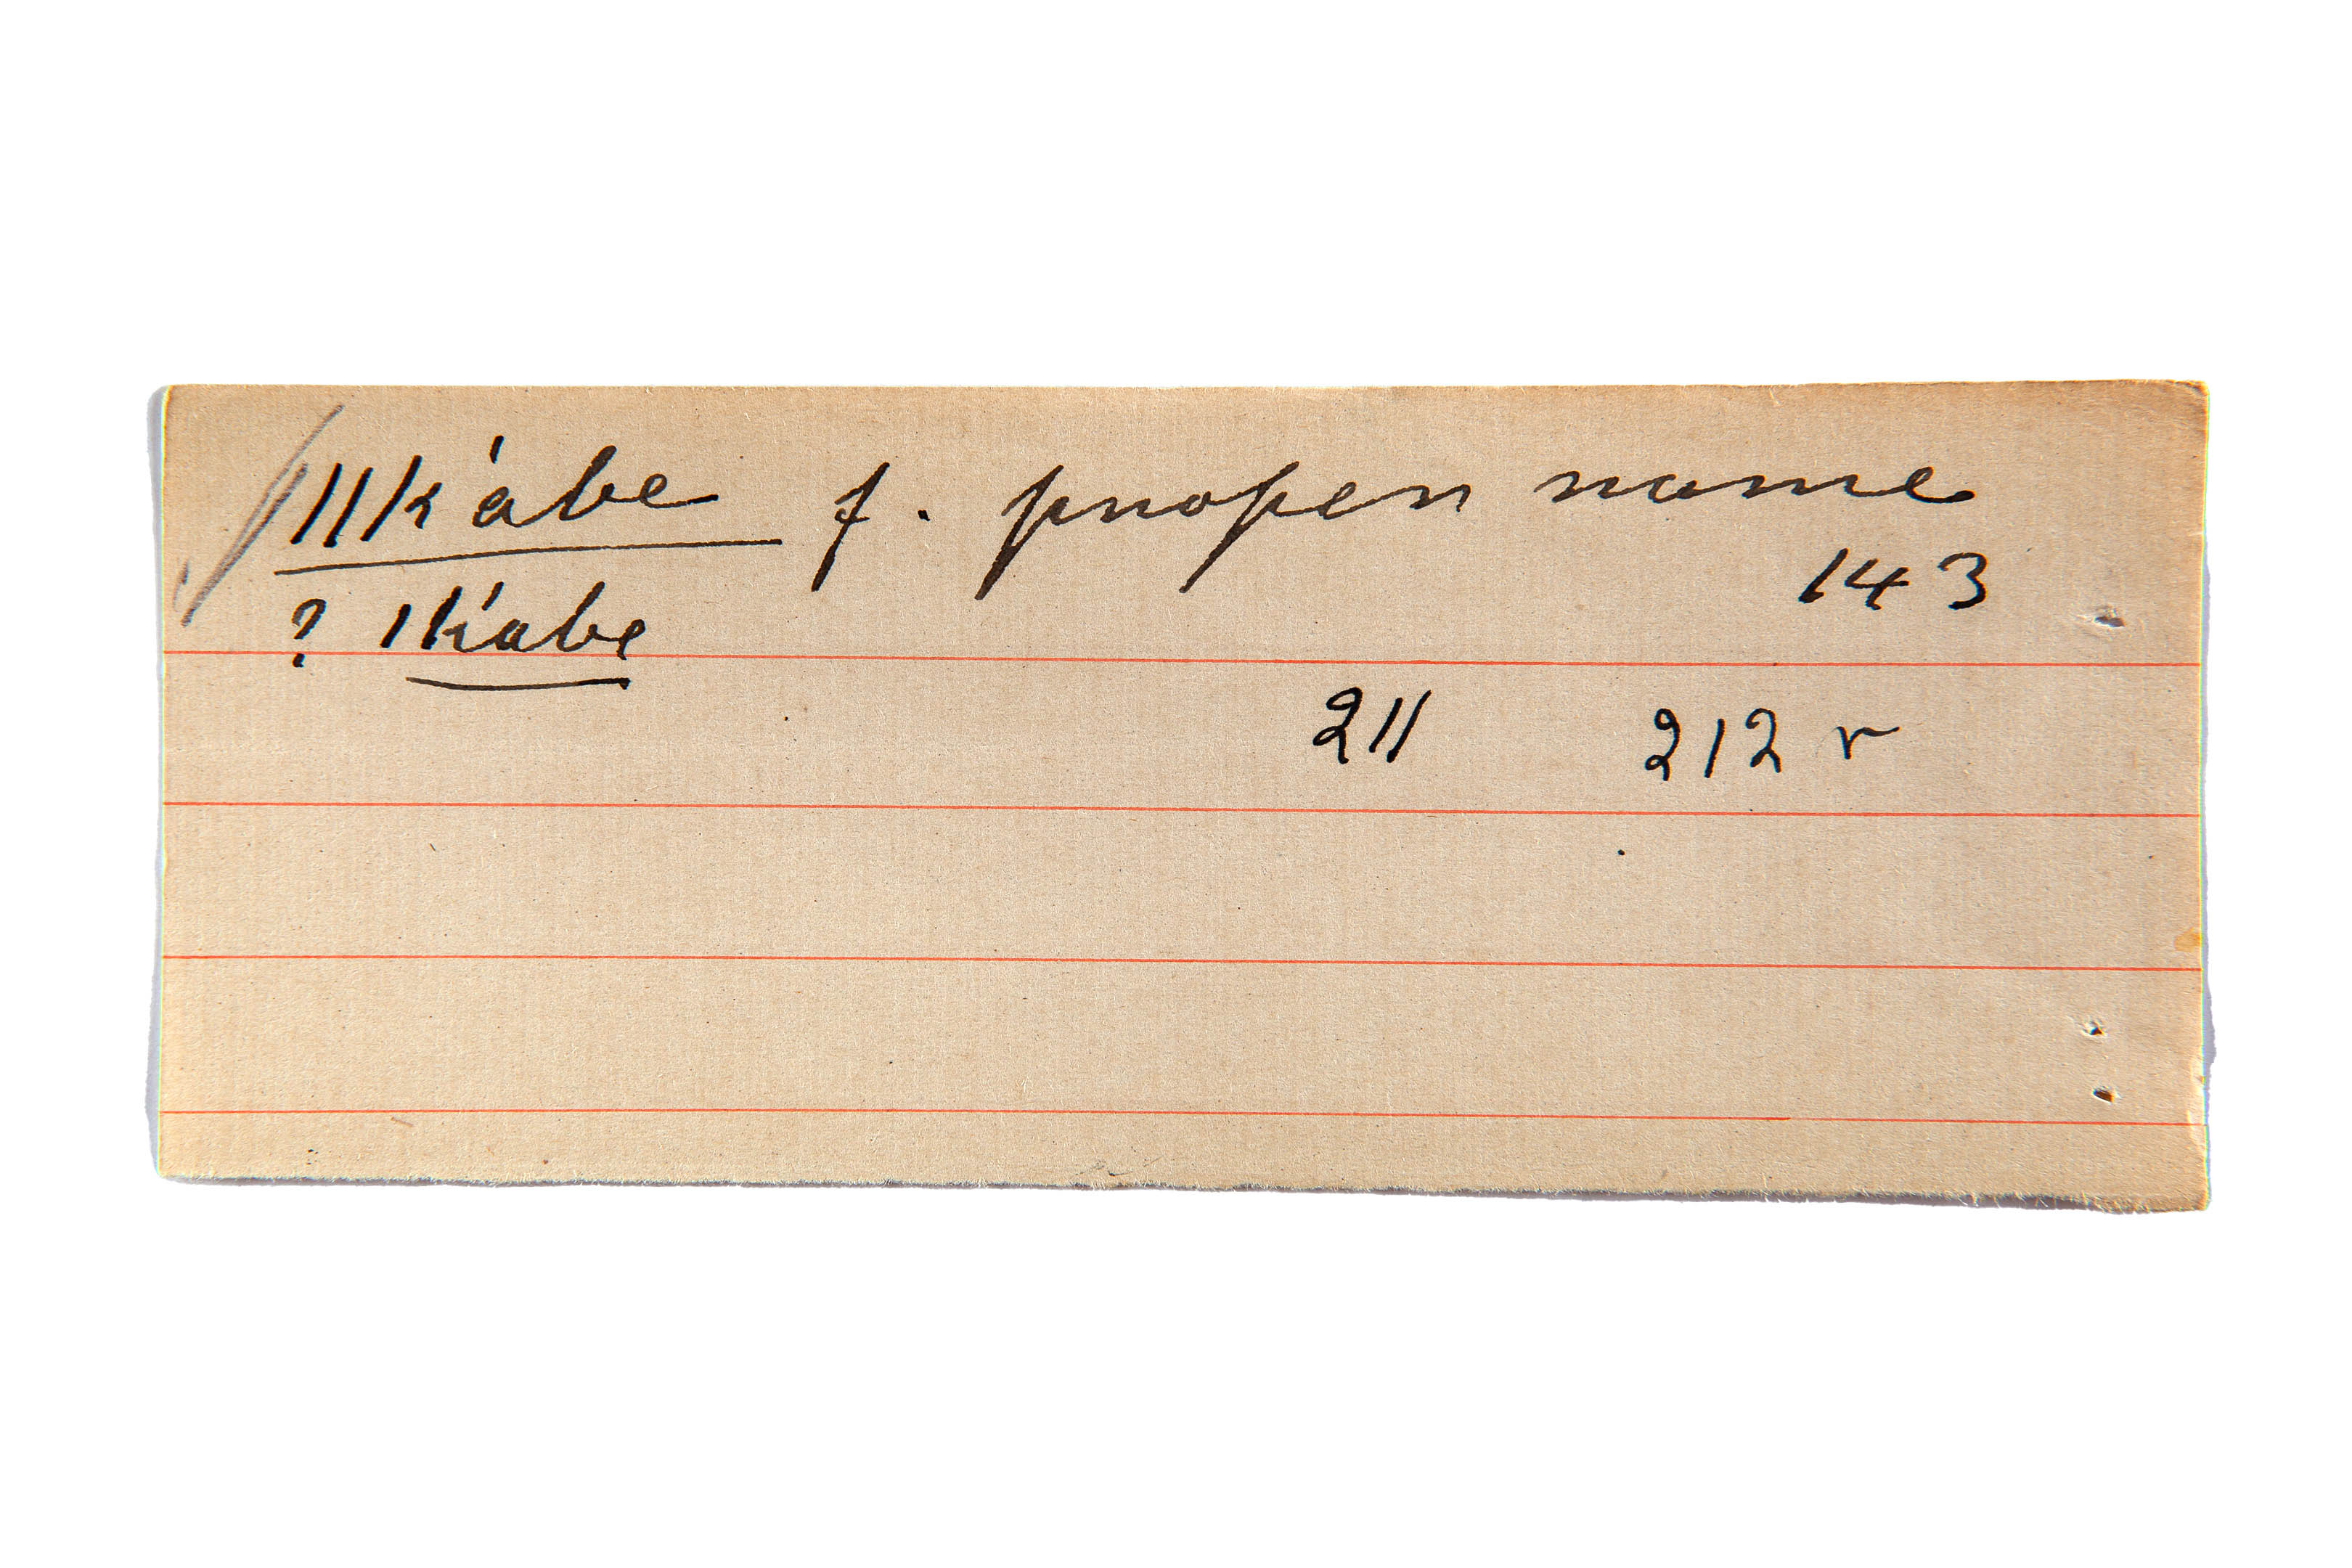 ǁk'abe f. proper name
143
? ǀk'abe
211 212 r